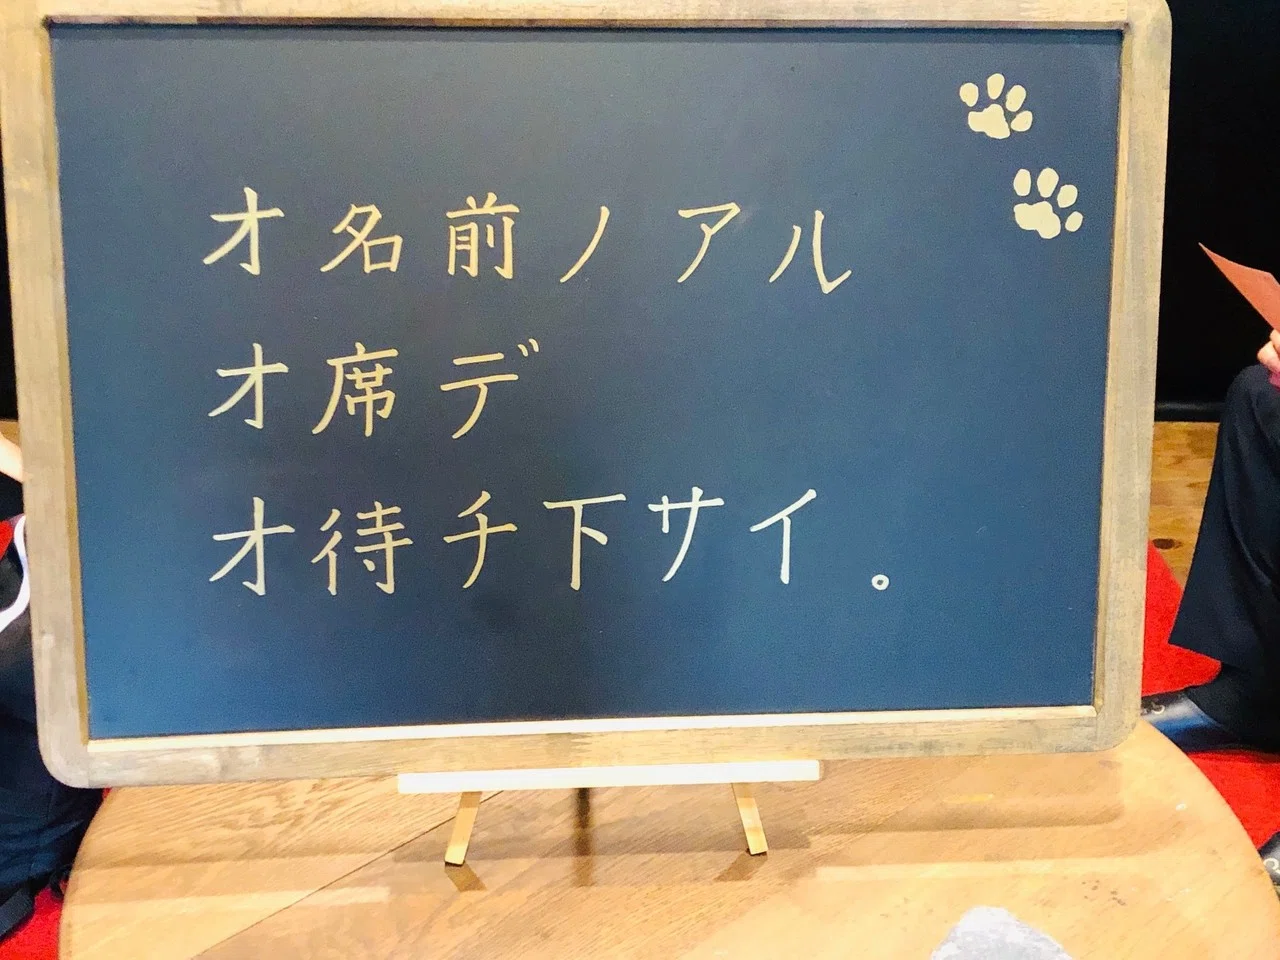 オ名前ノアル
オ席デ
オ待チ下サイ。